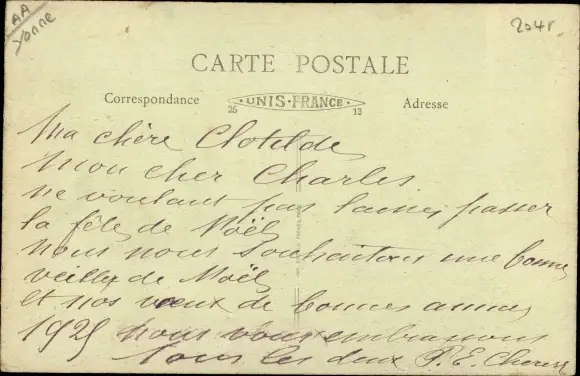 AA
Yonne
CARTE POSTALE
Correspondance
UNIS-FRANCE
25
13
Adresse
Ma chère Clotilde
Mon cher Charles
ne voulant pas laisser passer
la fête de Noël
nous nous souhaitons une bonne
veillée de Noël
et nos vœux de bonnes années
1925 nous vous embrassons
tous les deux P. E.